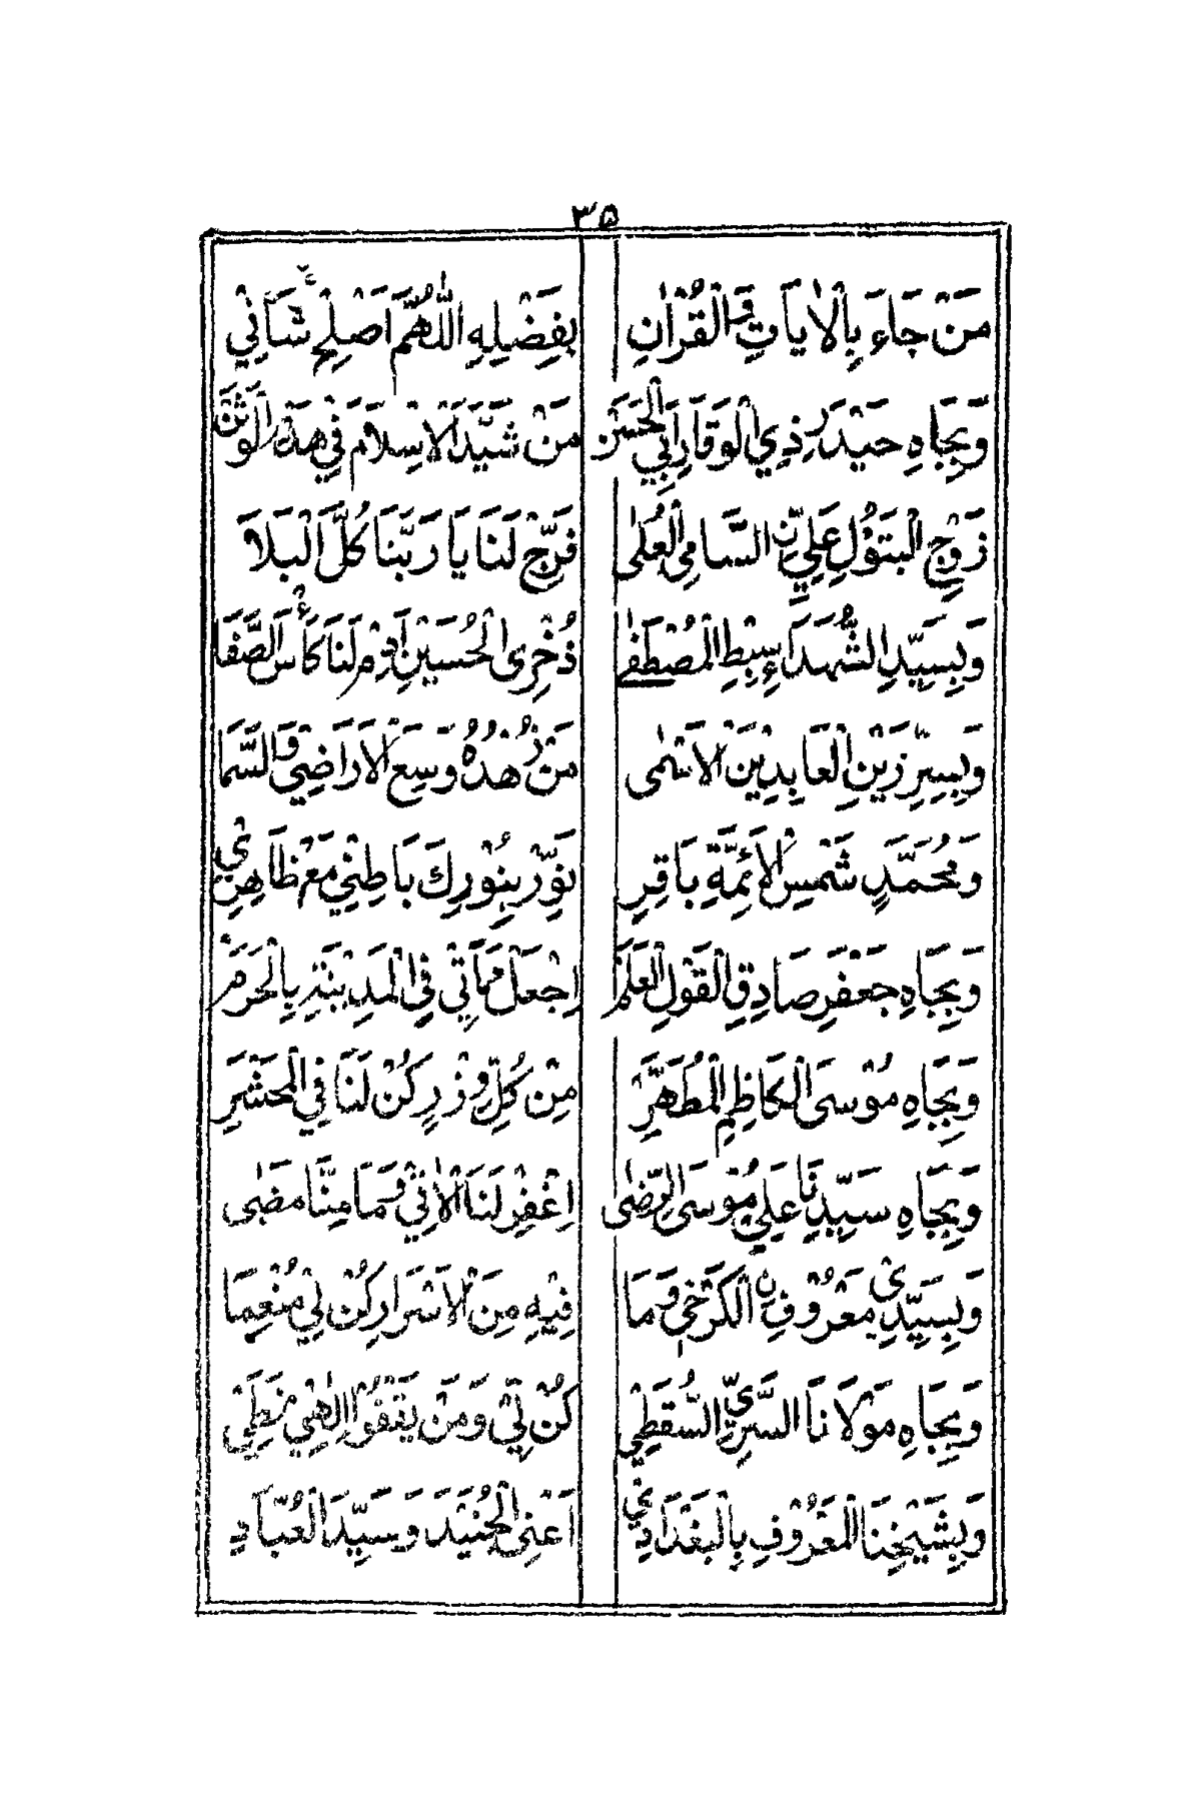 ٣٥
مَنْ جَاءَ بِالْاٰيَاتِ وَالْقُرْاٰنِ بِفَضْلِهِ اللّٰهُمَّ اَصْلِحْ شَأْنِيْ
وَبِجَاهِ حَيْدَرِ ذِي الْوَقَارِ اَبِي الْحَسَنْ مَنْ شَيَّدَ الْاِسْلَامَ فِيْ هٰذَا الْوَثَنْ
زَوْجِ الْبَتُوْلِ عَلِيِّنِ السَّامِي الْعُلٰى فَرِّجْ لَنَا يَا رَبَّنَا كُلَّ الْبَلَا
وَبِسَيِّدِ الشُّهَدَاءِ سِبْطِ الْمُصْطَفٰى ذُخْرِي الْحُسَيْنِ اَدِمْ لَنَا كَأْسَ الصَّفَا
وَبِسِرِّ زَيْنِ الْعَابِدِيْنَ الْاَسْمٰى مَنْ زُهْدُهُ وَسِعَ الْاَرَاضِيْ وَالسَّمَا
وَمُحَمَّدٍ شَمْسِ الْاَئِمَّةِ بَاقِرِ نَوِّرْ بِنُوْرِكَ بَاطِنِيْ مَعْ ظَاهِرِيْ
وَبِجَاهِ جَعْفَرِ صَادِقِ الْقَوْلِ الْعَلَمْ اِجْعَلْ مَمَاتِيْ فِي الْمَدِيْنَةِ بِالْحَرَمْ
وَبِجَاهِ مُوْسَى الْكَاظِمِ الْمُطَهَّرِ مِنْ كُلِّ وِزْرٍ كُنْ لَنَا فِي الْمَحْشَرِ
وَبِجَاهِ سَيِّدِنَا عَلِيِّ مُوْسَى الرِّضٰى اِغْفِرْ لَنَا الْاٰتِيْ وَمَا مِنَّا مَضٰى
وَبِسَيِّدِيْ مَعْرُوْفِنِ الْكَرْخِيْ وَمَا فِيْهِ مِنَ الْاَسْرَارِ كُنْ لِيْ مُنْعِمًا
وَبِجَاهِ مَوْلَانَا السَّرِيِّ السُّقَطِيْ كُنْ لِيْ وَمَنْ يَقْفُوْ اِلٰهِيْ نَمَطِيْ
وَبِشَيْخِنَا الْمَعْرُوْفِ بِالْبَغْدَادِيْ اَعْنِي الْجُنَيْدَ وَسَيِّدَ الْعُبَّادِ